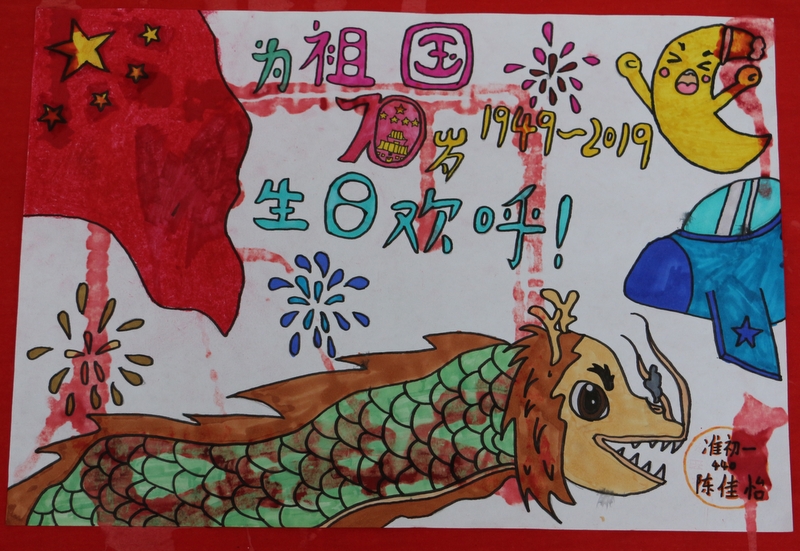 为祖国
70岁 1949-2019
生日欢呼!
准初一
440
陈佳怡